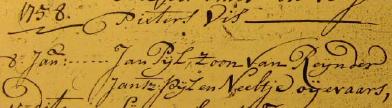 1758.
Pieters Vis
8 Jan: Jan Pyl, zoon van Reynder
Jantz: Pyl en Neeltje oijevaars,